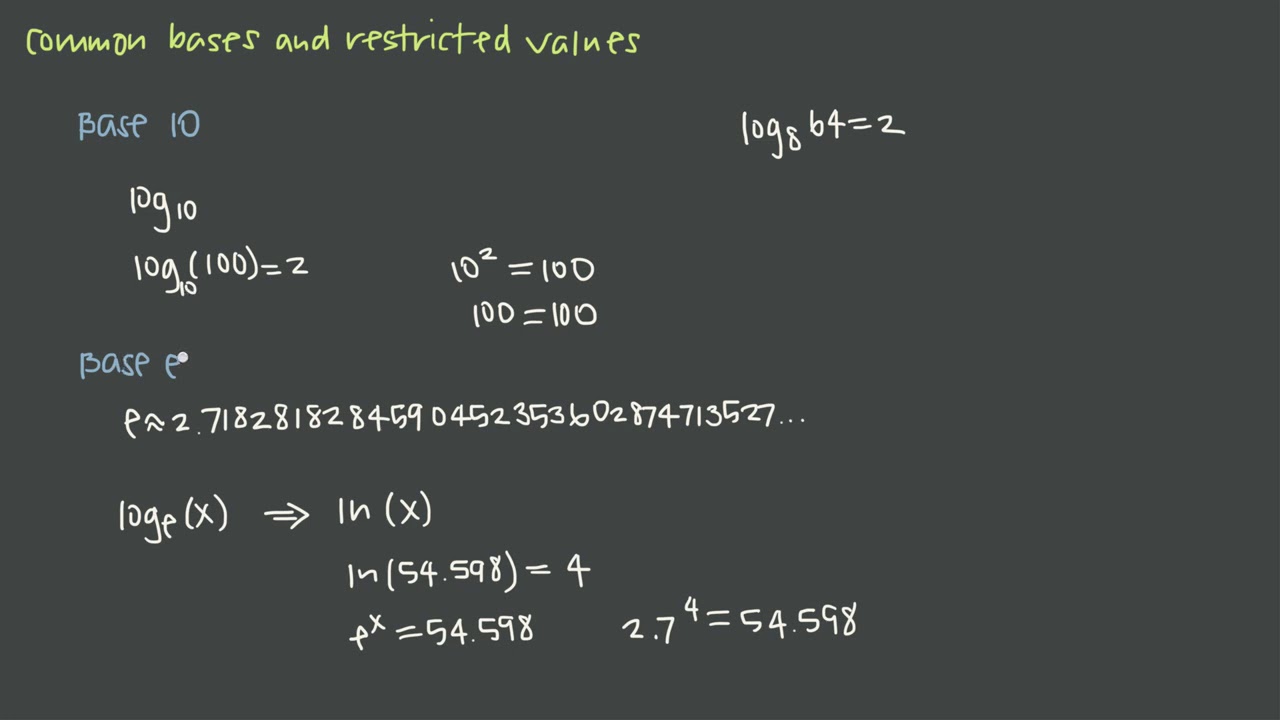 common bases and restricted values
Base 10
log₈ 64=2
log₁₀
log₁₀(100)=2
10² = 100
100 = 100
Base e
e≈2.7182818284590452353602874713527...
logₑ(x) ⇒ ln(x)
ln(54.598) = 4
eˣ = 54.598
2.7⁴ = 54.598